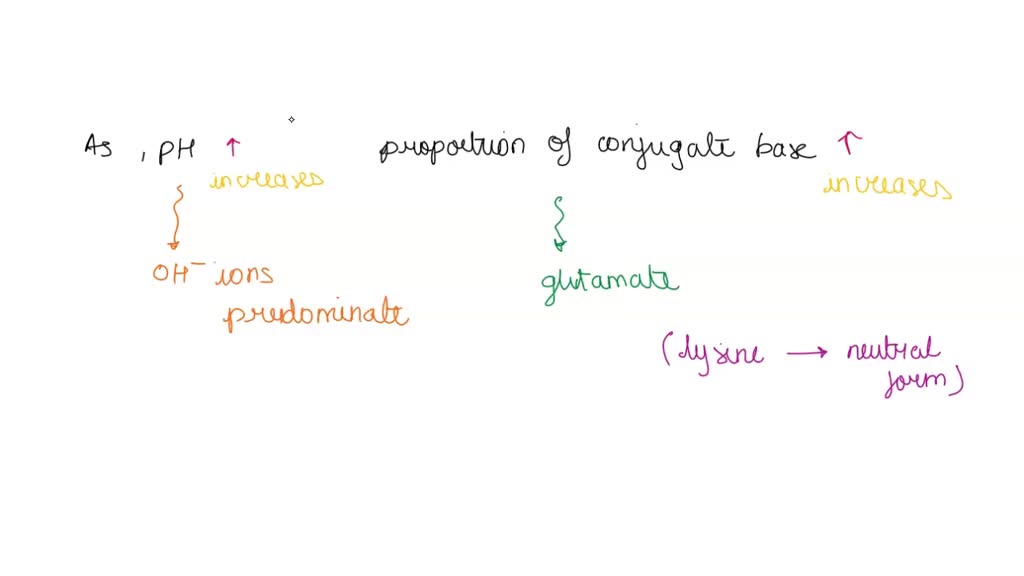 As , PH ↑ proportion of conjugate base ↑
increases increases
OH⁻ ions glutamate
predominate
(lysine → neutral
form)